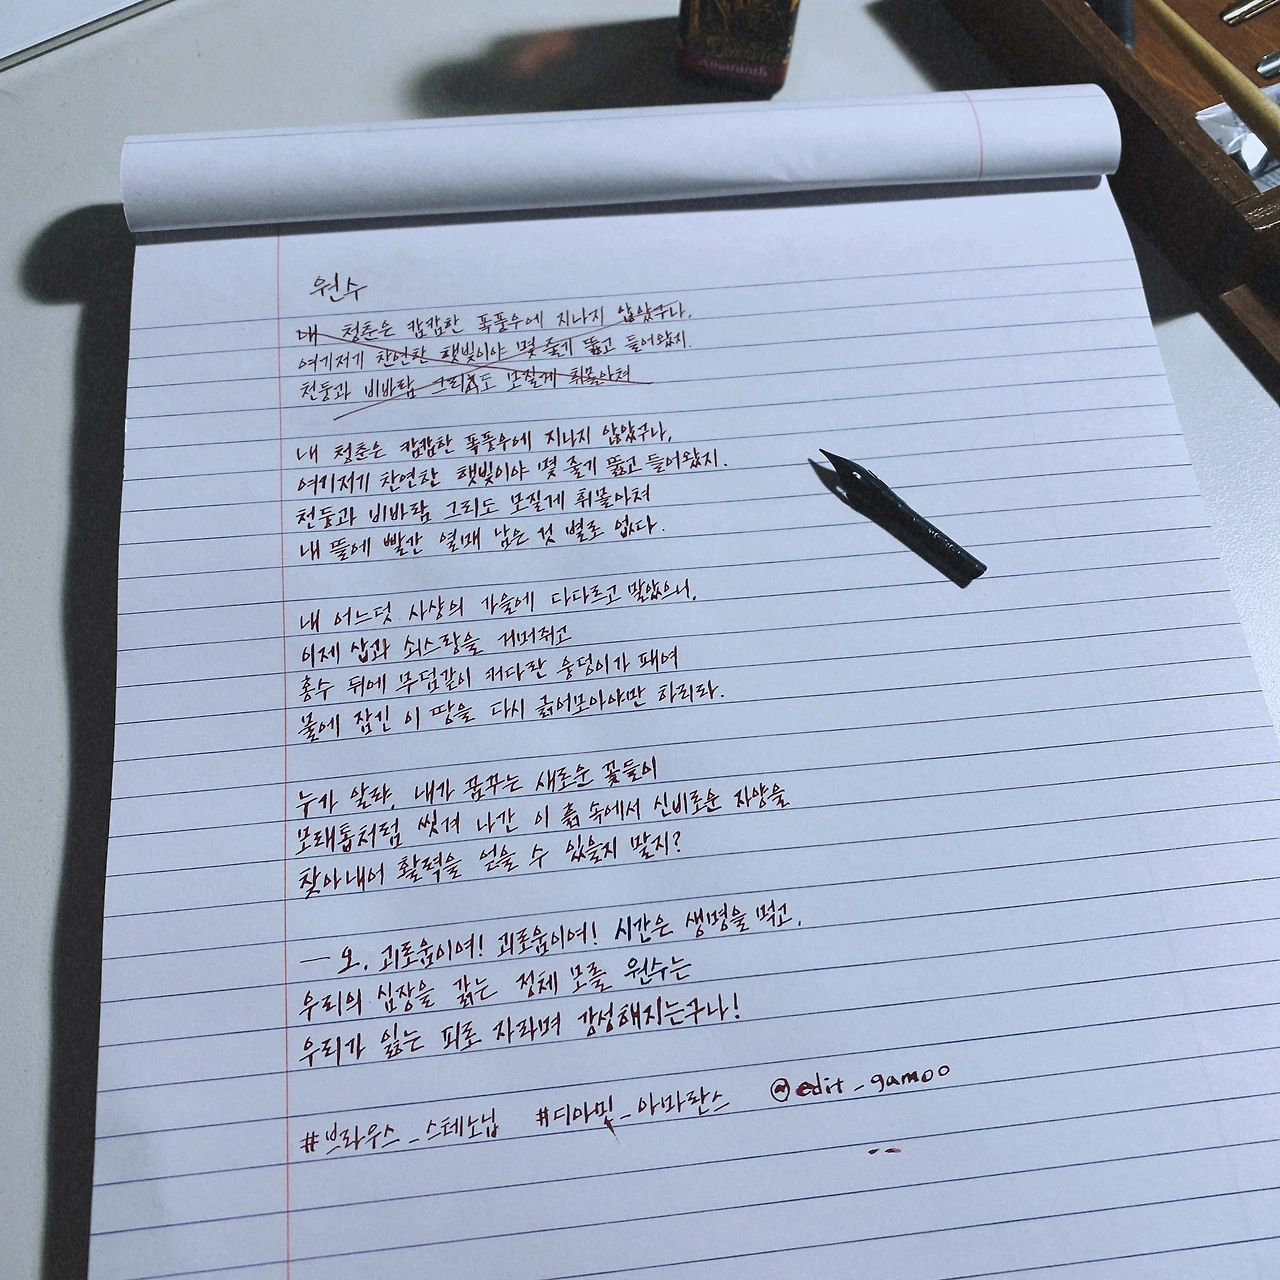 Amaranth
원수
내 청춘은 캄캄한 폭풍우에 지나지 않았구나,
여기저기 찬연한 햇빛이야 몇 줄기 뚫고 들어왔지.
천둥과 비바람 그리도 모질게 휘몰아쳐
내 청춘은 캄캄한 폭풍우에 지나지 않았구나,
여기저기 찬연한 햇빛이야 몇 줄기 뚫고 들어왔지.
천둥과 비바람 그리도 모질게 휘몰아쳐
내 뜰에 빨간 열매 남은 것 별로 없다.
내 어느덧 사상의 가을에 다다르고 말았으니,
이제 삽과 쇠스랑을 거머쥐고
홍수 뒤에 무덤같이 커다란 웅덩이가 패여
물에 잠긴 이 땅을 다시 긁어모아야만 하리라.
누가 알랴, 내가 꿈꾸는 새로운 꽃들이
모래톱처럼 씻겨 나간 이 흙 속에서 신비로운 자양을
찾아내어 활력을 얻을 수 있을지 말지?
— 오, 괴로움이여! 괴로움이여! 시간은 생명을 먹고,
우리의 심장을 갉는 정체 모를 원수는
우리가 잃는 피로 자라며 강성해지는구나!
#브라우스_스테노닙 #디아민_아마란스 @edit_gamoo